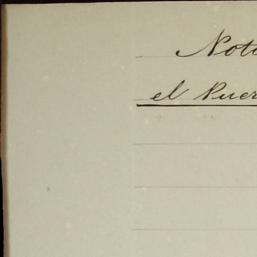 Noti
el Puer